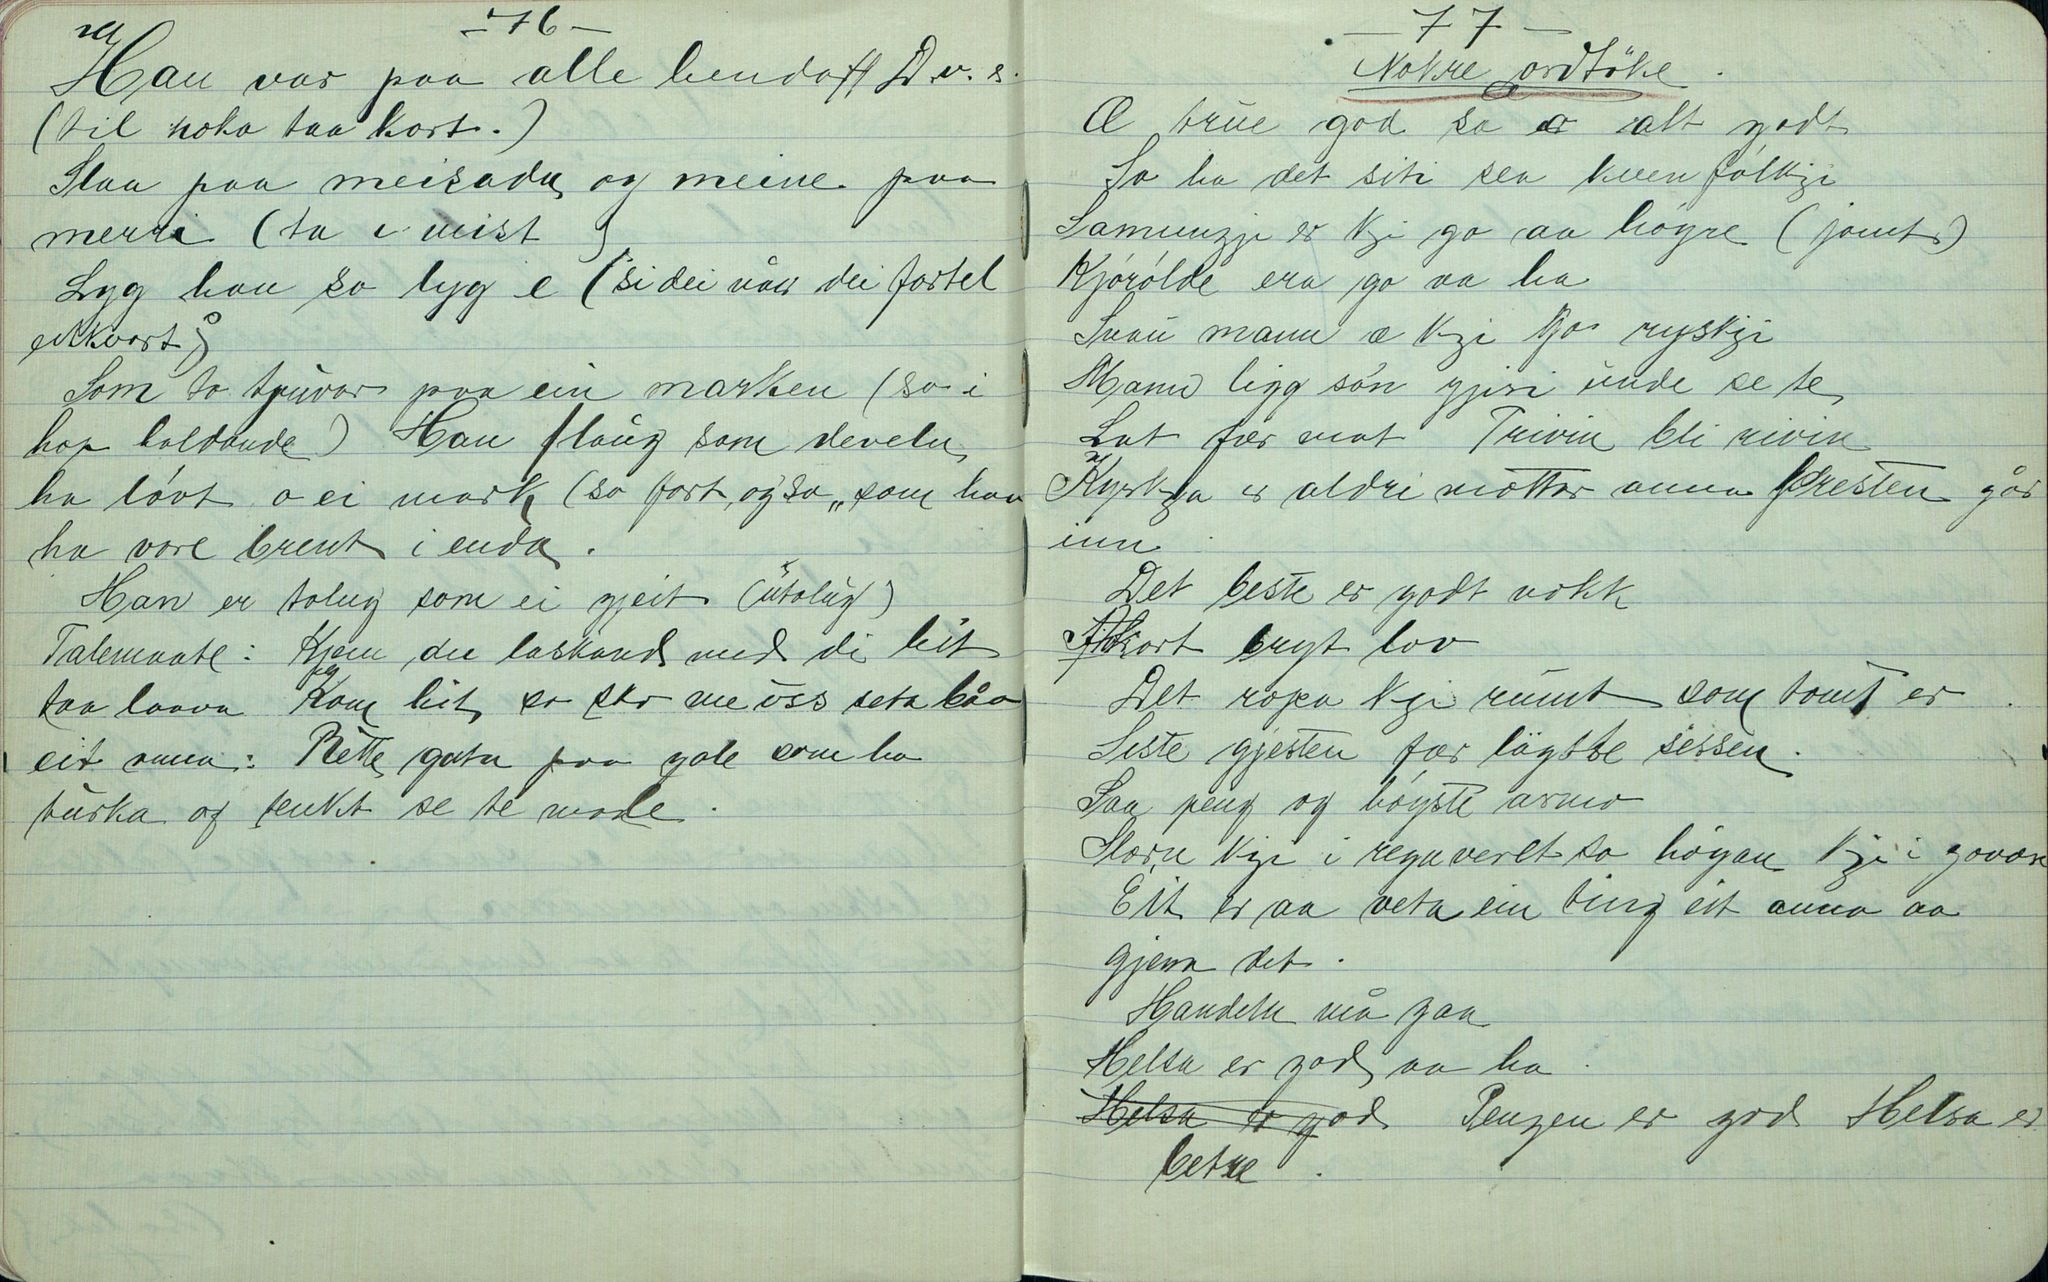 - 76 -
Han var paa alle benda D.v.s.
(til noko taa kort.)
Slaa paa meisadn og meine paa
merri (ta i mist)
Lyg han so lyg e (si dei når dei fortel
eitkvart)
Som to tjuvar paa ein marken (so i
hop haldande) Han flaug som develn
ha lóvt o ei mark (so fort, og so „som han
ha vore brent i enda.
Han er tolug som ei gjeit (utolug)
Talemaate: Kjem du laskand med di hit
taa laava Kom hit so sko me oss seta båo
eit anna: Rette gata paa gale som ha
turka og tenkt se te mode.
- 77 -
Nokre ordtöke.
Æ true god so er alt godt
So ha det siti sea kvenfólkji
Samunzji er kji go aa högre (jamt)
Kjórólde era go aa ha
Snau mann æ kji go ryskji
Mann ligg són gjiri unde se te
Lat fær mat Trivin bli rivin
Kyrkja er aldri nøttar anna Presten går
inn.
Det beste er godt nokk
kort bryt lov
Det ropa kji rumt som tomt er.
Siste gjesten fær lägste sessen.
Saa peng og högste armo
Slorn kji i regnveret so högan kji i govære
Eit er aa veta ein ting eit anna aa
gjera det.
Handeln må gaa
Helsa er god aa ha.
Helsa er god Pengen er god Helsa er
betre.